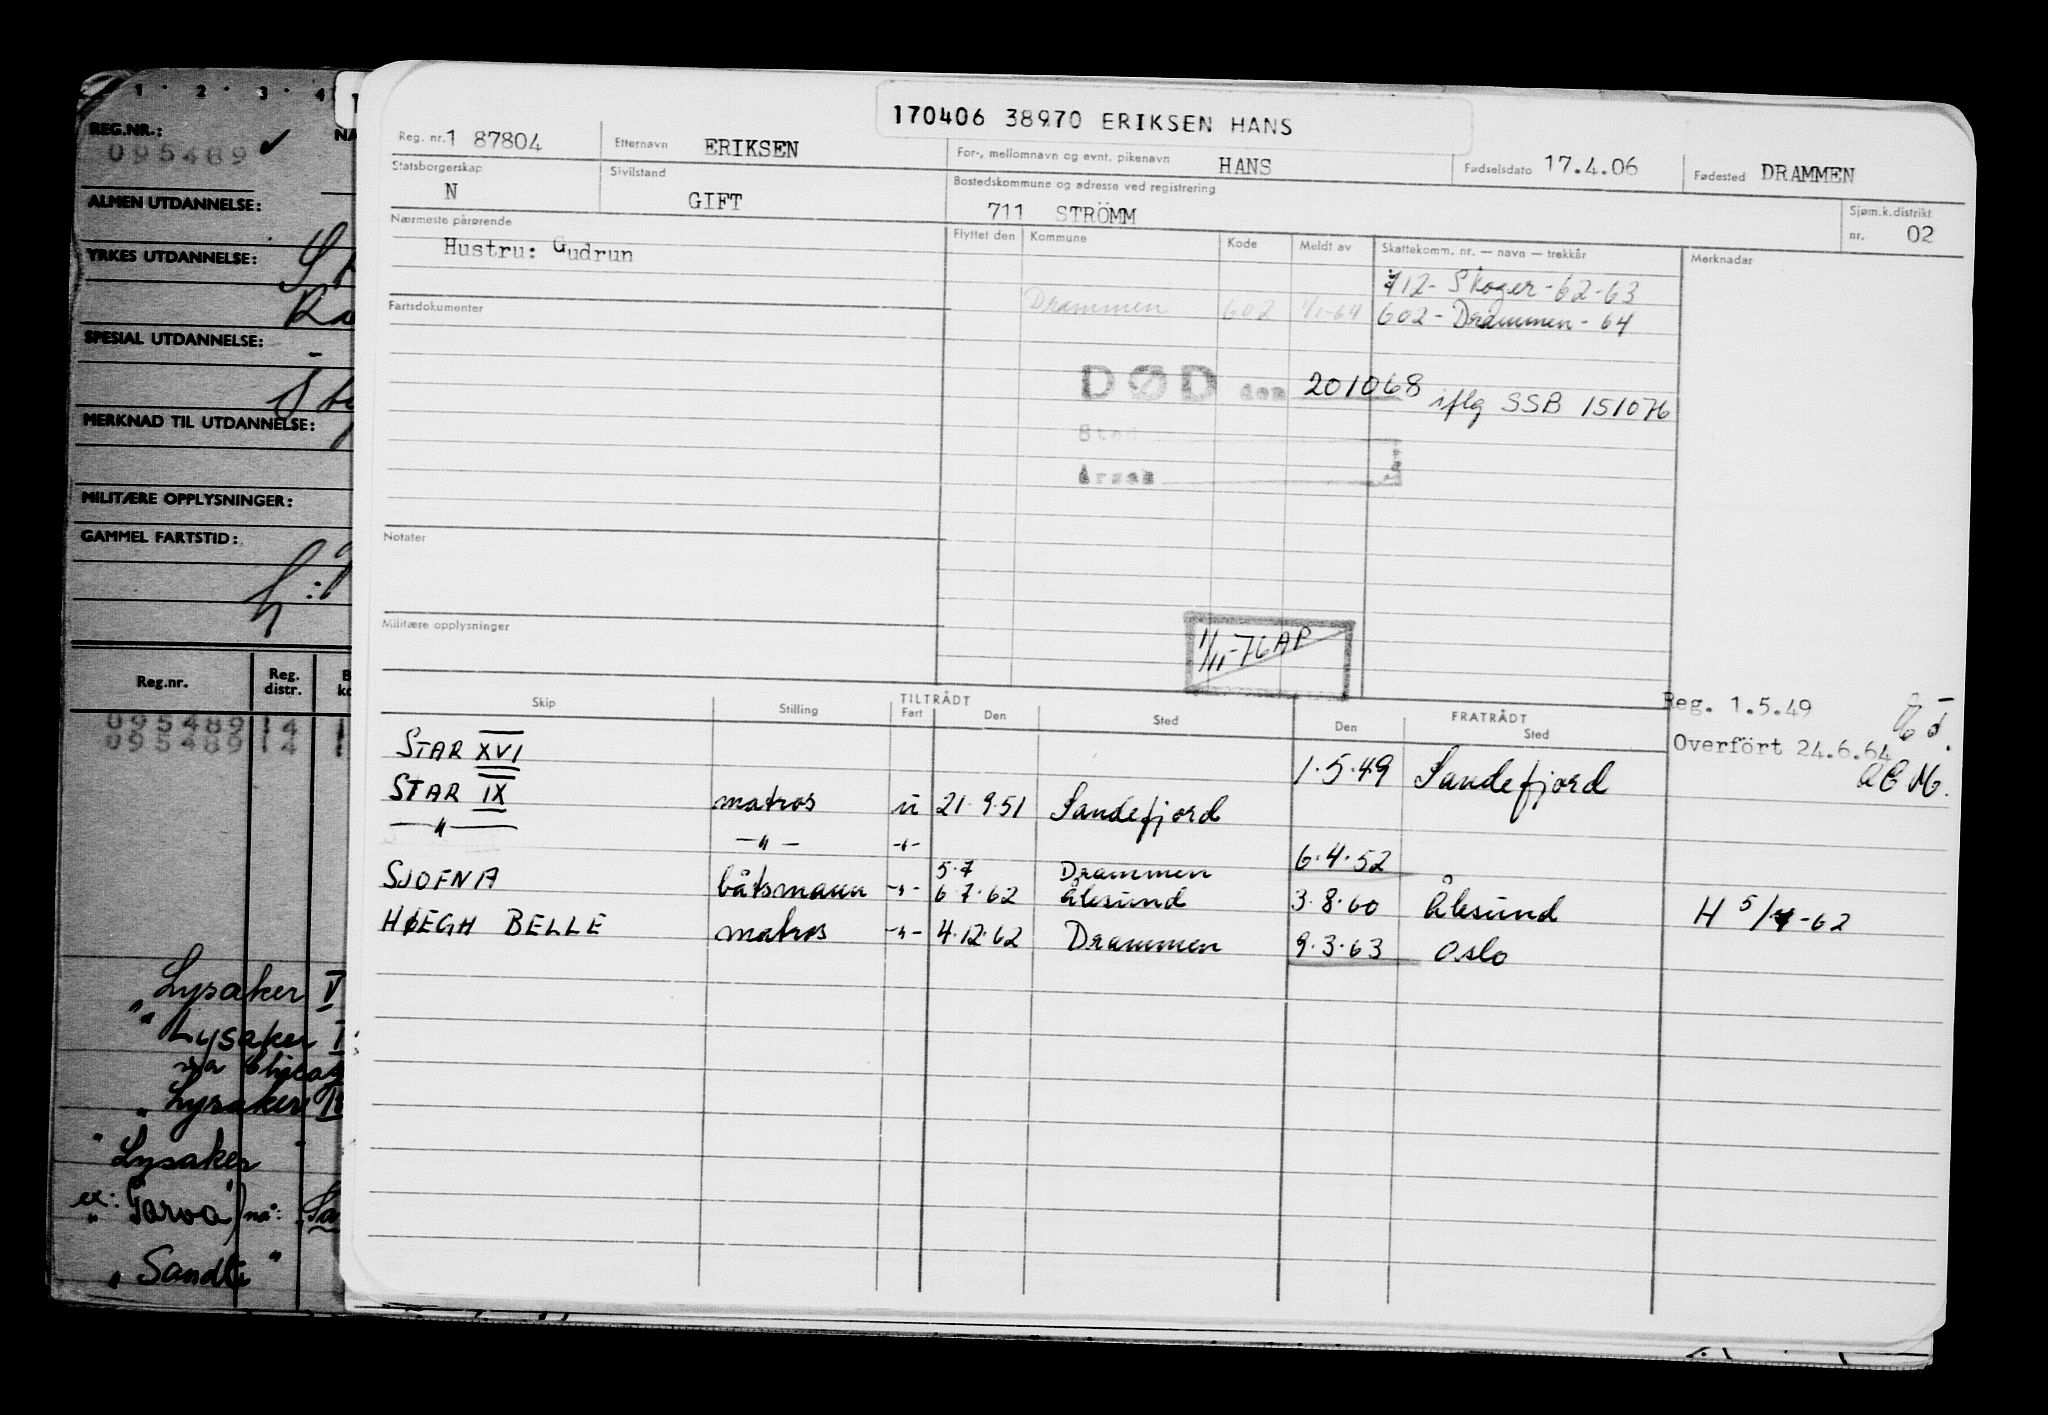 1 · 2 · 3 · 4
REG.NR.:
095489 ✓
ALMEN UTDANNELSE:
YRKES UTDANNELSE:
SPESIAL UTDANNELSE:
MERKNAD TIL UTDANNELSE:
MILITÆRE OPPLYSNINGER:
GAMMEL FARTSTID:
Reg.nr. Reg. distr.
095489 14
095489 14
"Lysaker V
"Lysaker
"Lysaker
"Lysaker"
ex: "Tarva) nå:
"Sandli"
170406 38970 ERIKSEN HANS
Reg. nr. 1 87804 Etternavn ERIKSEN For-, mellomnavn og evnt. pikenavn HANS Fødselsdato 17.4.06 Fødested DRAMMEN
Statsborgerskap N Sivilstand GIFT Bostedskommune og adresse ved registrering 711 STRÖMM Sjøm.k.distrikt nr. 02
Nærmeste pårørende Flyttet den Kommune Kode Meldt av Skattekomm. nr. — navn — trekkår Merknader
Hustru: Gudrun
712 - Skoger - 62-63
Fartsdokumenter Drammen 602 4/1-64 602 - Drammen - 64
DØD den 201068 iflg SSB 151076
Sted
Årsak
Notater
Militære opplysninger
1/11-76 AP
Skip Stilling TILTRÅDT Fart Den Sted FRATRÅDT Den Sted
Reg. 1.5.49
Overfört 24.6.64
STAR XVI 1.5.49 Sandefjord
STAR IX matros u 21.9.51 Sandefjord
—"— —"— -"- 6.4.52
5.7 Drammen
SJOFNA båtsmann -"- 6.7.62 Ålesund 3.8.60 Ålesund H 5/7-62
HØEGH BELLE matros -"- 4.12.62 Drammen 9.3.63 Oslo